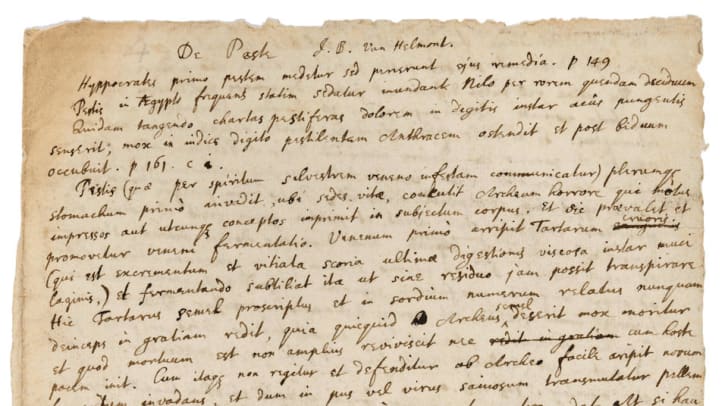 De Peste J. B. Van Helmont.
Hyppocrates primo pestem medetur sed perierunt ejus remedia. p 149
Pestis in Ægypto frequens statim sedatur inundante Nilo per rorem quendam deciduum
Quidam tangendo chartas pestiferas dolorem in digitis instar acûs pungentis
senserit; mox in indice digito pestilentem Anthracem ostendit et post biduum
occubuit. p 161. c
Pestis (quæ per spiritum silvestrem veneno infestam communicatur) plerumq
stomachum primò invadit, ubi sedes vitæ, concutit Archeum horrore qui motus
impressos aut utcunq conceptos imprimit in subjectum corpus. Et sic prævalet et
promovetur veneni fermentatio. Venenum primo arripit Tartarum cruoris
(qui est excrementum et vitiata scoria ultimæ digestionis viscosa instar muci
laginis,) et fermentando subtiliat ita ut sine residuo jam possit transpirare
Hic Tartarus semel proscriptus et in sordium numerum relatus nunquam
deinceps in gratiam redit, quia quicquid Archeus semel deserit mox moritur
et quod mortuum est non amplius reviviscit nec redit in gratiam cum hoste
pacem init. Cum itaq non regitur et defenditur ab Archeo facile arripit novum
invadens, et dum in pus vel virus saniosum transmutatur pellem